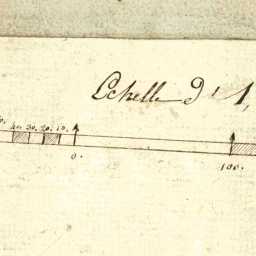 Echelle d' 1,
40. 30. 20. 10.
0. 100.